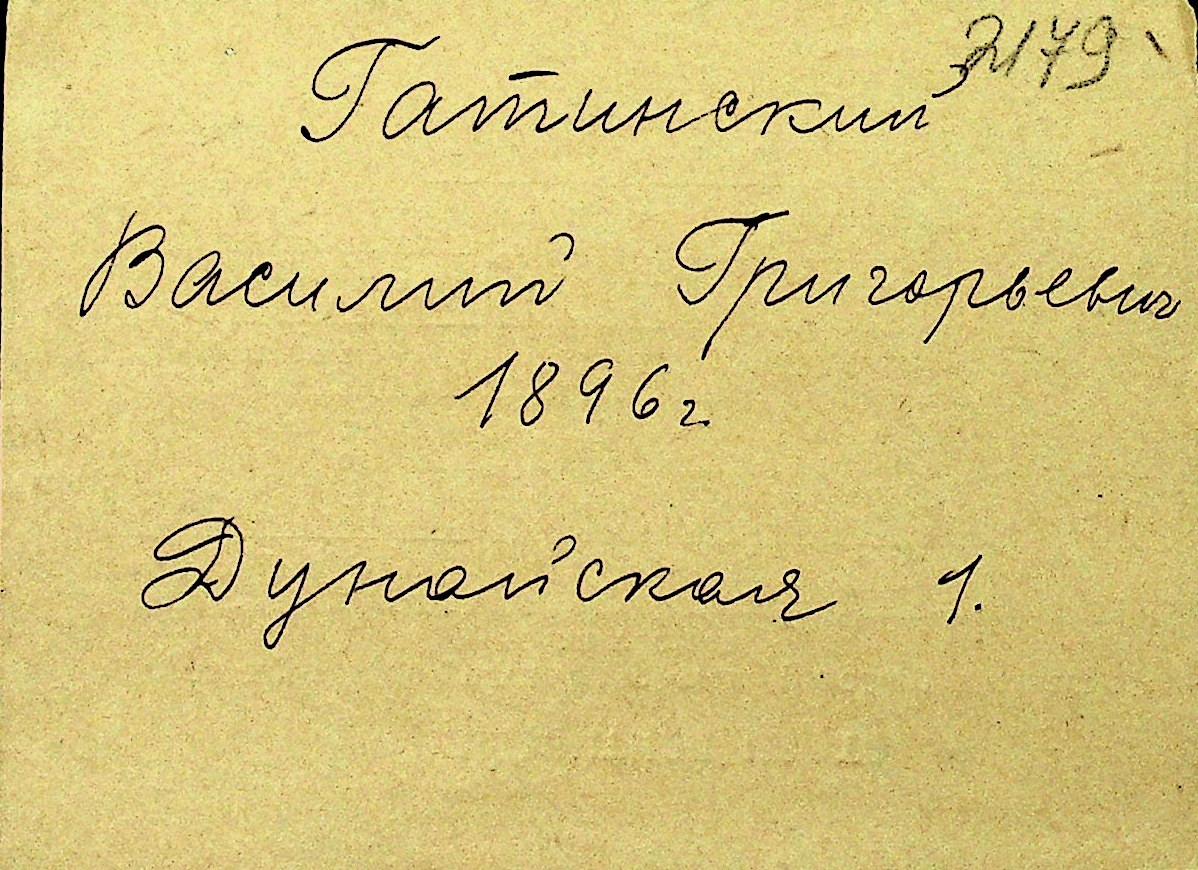 3179
Гатинский
Василий Григорьевич
1896 г.
Дунайская 1.